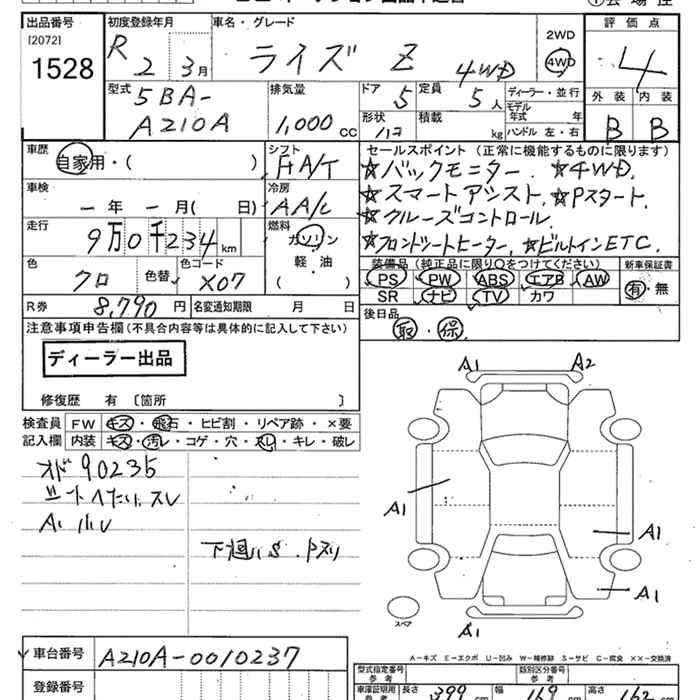 出品番号 初度登録年月 車名・グレード 評価点
[2072] 1528
R 2 3月 ライズ Z 4WD
2WD 4WD
4
型式 5BA-A210A
排気量 1,000 cc
ドア 5 定員 5人 ディーラー・並行
形状 積載 kg モデル年式 年
ハンドル 左・右
外装 内装
B B
車歴 自家用・( )
シフト FA/T
セールスポイント (正常に機能するものに限ります)
☆バックモニター. ☆4WD.
☆スマートアシスト. ☆Pスタート.
☆クルーズコントロール
☆フロントシートヒーター. ☆ビルトインETC.
車検 ー年ー月( 日)
冷房 AA/C
走行 9万0千234km
燃料 ガソリン 軽・油 ( )
色 クロ 色替 色コード X07
装備品 (純正品に限り○をつけてください) 新車保証書
PS PW ABS エアB AW 有・無
SR ナビ TV カワ
R券 8,790円 名変通知期限 月 日
後日品 取・保
注意事項申告欄(不具合内容等は具体的に記入して下さい)
ディーラー出品
修復歴 有 〔箇所 〕
検査員記入欄
FW キズ・飛石・ヒビ割・リペア跡・×要
内装 キズ・汚レ・コゲ・穴・スレ・キレ・破レ
オド90235
シートヘたり.スレ
A1 A2
A1
A1
A1
A1
スペア
A-キズ E-エクボ U-凹み W-補修跡 S-サビ C-腐食 XX-交換済
車台番号 A210A-0010237
登録番号
型式指定番号 参考 類別区分番号 参考
車庫証明用 参考 長さ 399cm 幅 169cm 高さ 162cm